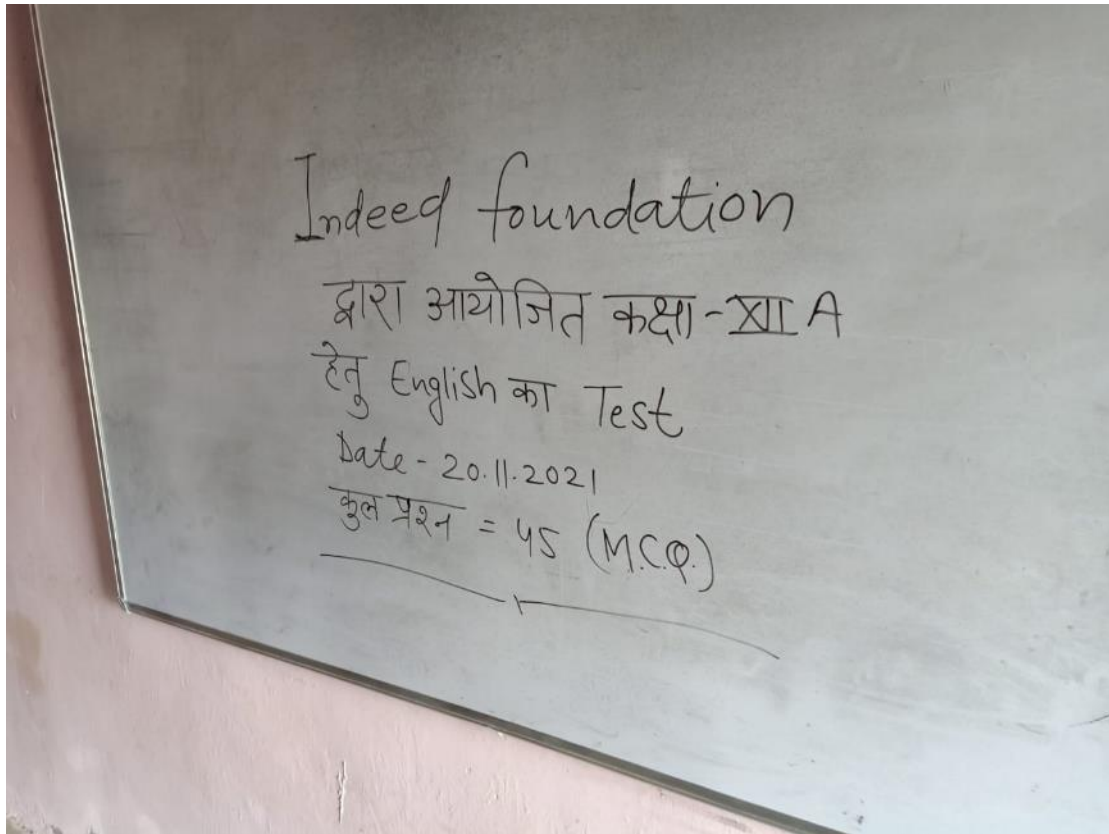 Indeed foundation
द्वारा आयोजित कक्षा-XII A
हेतु English का Test
Date - 20.11.2021
कुल प्रश्न = 45 (M.C.Q.)